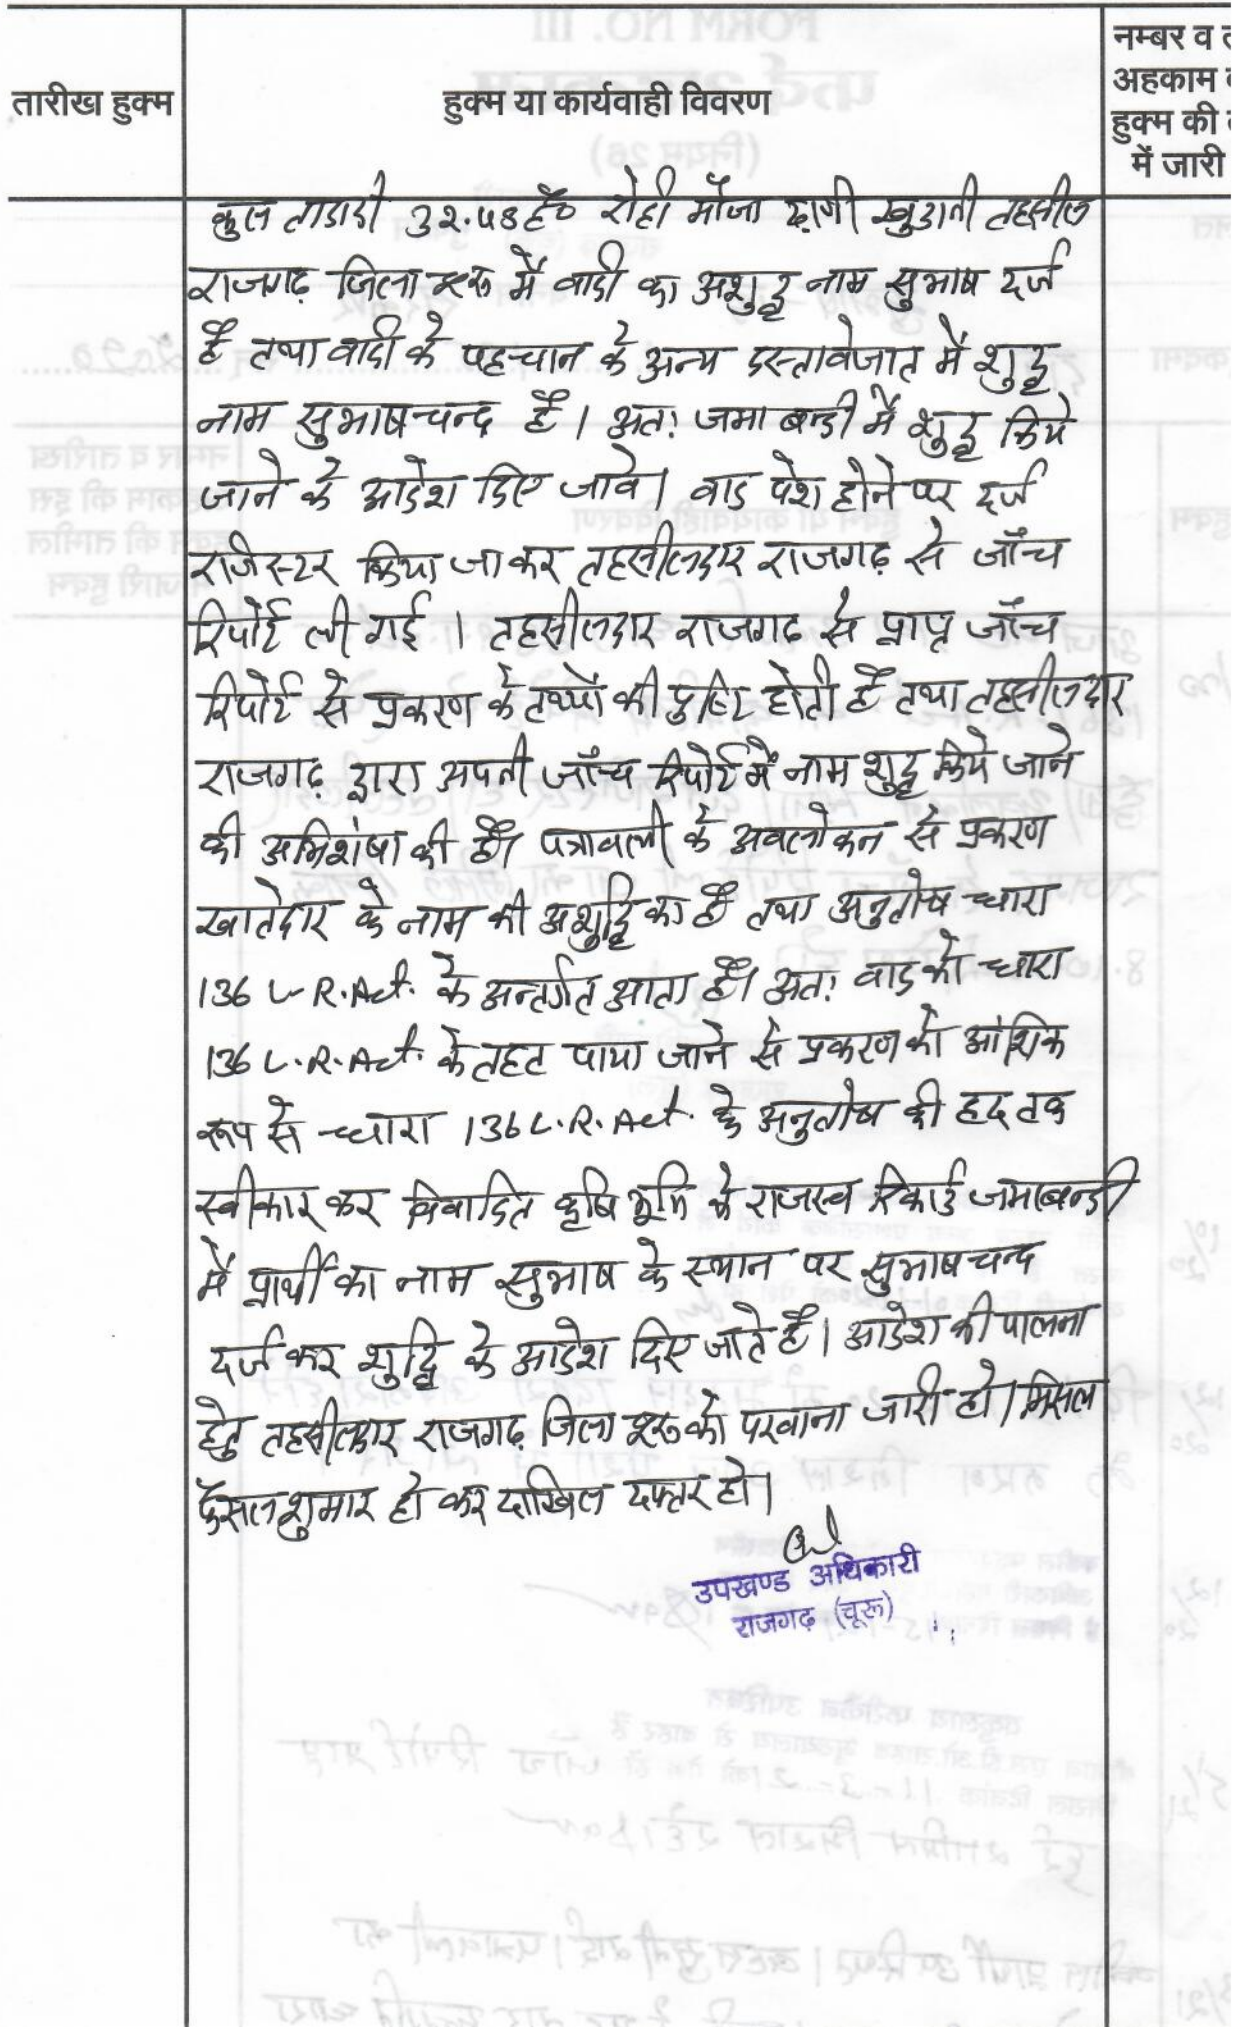 तारीख हुक्म
हुक्म या कार्यवाही विवरण
नम्बर व त
अहकाम
हुक्म की
में जारी
कुल तादादी 32.48 है० रोही मौजा ढाणी खुडानी तहसील
राजगढ़ जिला चूरू में वादी का अशुद्ध नाम सुभाष दर्ज
है तथा वादी के पहचान के अन्य दस्तावेजात में शुद्ध
नाम सुभाषचन्द है। अतः जमाबन्डी में शुद्ध किये
जाने के आदेश दिए जावे। वाद पेश होने पर दर्ज
रजिस्टर किया जाकर तहसीलदार राजगढ़ से जाँच
रिपोर्ट ली गई। तहसीलदार राजगढ़ से प्राप्त जाँच
रिपोर्ट से प्रकरण के तथ्यों की पुष्टि होती है तथा तहसीलदार
राजगढ़ द्वारा अपनी जाँच रिपोर्ट में नाम शुद्ध किये जाने
की अभिशंषा की है। पत्रावली के अवलोकन से प्रकरण
खातेदार के नाम की अशुद्धि का है तथा अनुतोष धारा
136 L.R.Act. के अन्तर्गत आता है। अतः वाद को धारा
136 L.R.Act. के तहत पाया जाने से प्रकरण को आंशिक
रूप से धारा 136 L.R.Act. के अनुतोष की हद तक
स्वीकार कर विवादित कृषि भूमि के राजस्व रिकार्ड जमाबन्डी
में प्रार्थी का नाम सुभाष के स्थान पर सुभाषचन्द
दर्ज कर शुद्धि के आदेश दिए जाते है। आदेश की पालना
हेतु तहसीलदार राजगढ़ जिला चूरू को परवाना जारी हो। मिसल
फैसल शुमार हो कर दाखिल दफ्तर हो।
उपखण्ड अधिकारी
राजगढ़ (चूरू)